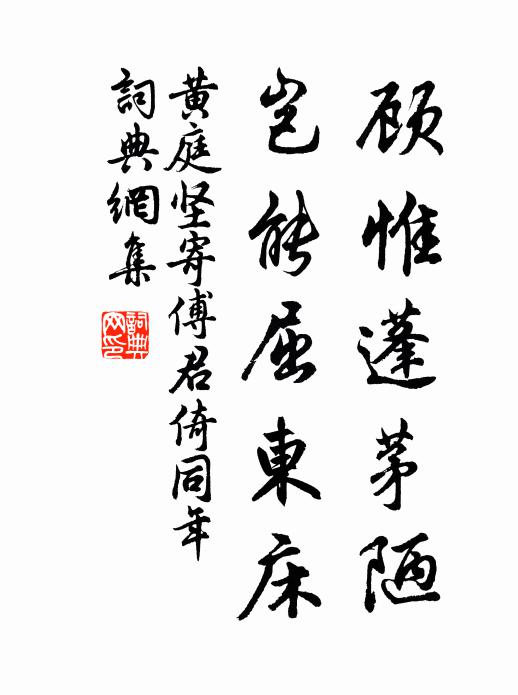 顾惟蓬茅陋
岂能屈東床
黄庭坚寄傅君倚同年
詞典網集
詞典网印